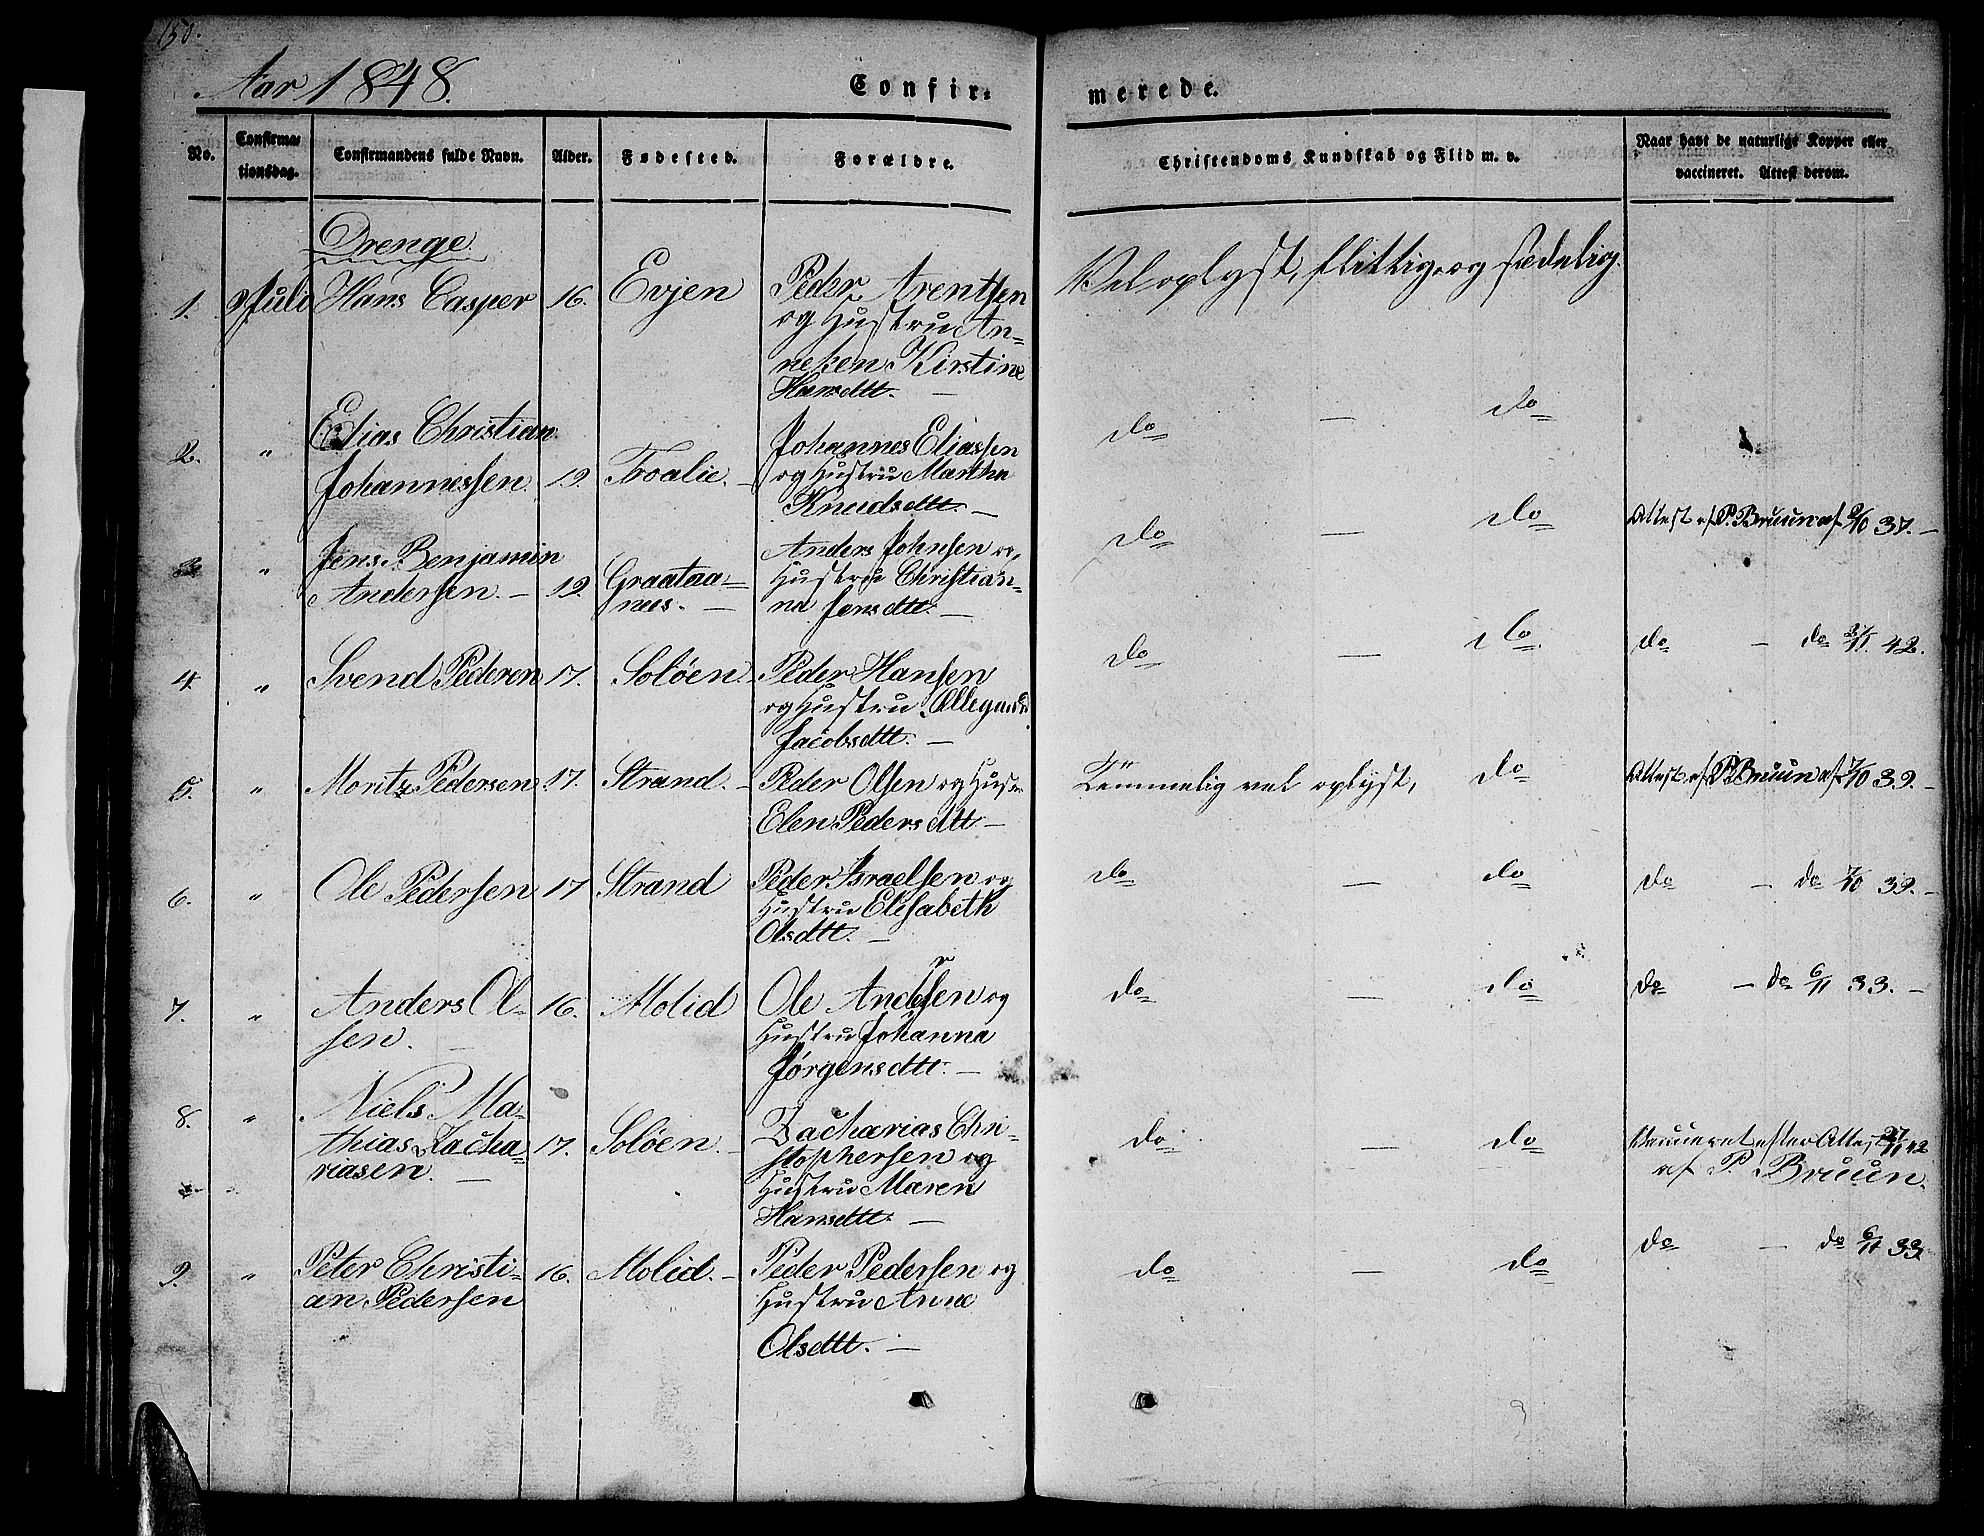 150.
Aar 1848.
Confir-
merede.
No.
Confirma-
tionsdag.
Confirmandens fulde Navn.
Alder.
Fødested.
Forældre.
Christendoms Kundskab og Flid m. v.
Naar havt de naturlige Kopper eller
vaccineret. Attest derom.
Drenge
1. Juli Hans Casper 16. Evjen Peder Arentsen
og Hustru An-
neken Kirstine
Hansdtt. —
Vel oplyst, flittig og sædelig.
2. " Elias Christian
Johannessen. 19. Troalie. — Johannes Eliassen
og Hustru Martha
Knudsdtt. —
do — do
3. " Jens Benjamin
Andersen. — 19. Graataa-
næs. — Anders Johnsen og
Hustru Christian-
na Jensdtt. —
do — do Attest af P. Bruun af 9/10 37. —
4. " Svend Pederen 17. Soløen. Peder Hansen
og Hustru Ollegaard
Jacobsdtt. —
do — do do — do 27/11 42.
5. " Moritz Pedersen 17. Strand. — Peder Olsen og Hust
Elen Pedersdtt —
Temmelig vel oplyst, do Attest af P. Bruun af 7/10 39. —
6. " Ole Pedersen 17 Strand Peder Israelsen og
Hustru Elisabeth
Olsdtt. —
do — do do — do 7/10 39. —
7. " Anders Ol-
sen. — 16. Molid Ole Andersen og
Hustru Johanna
Jørgensdtt. —
do — do do — do 6/11 33. —
8. " Niels Ma-
thias Zacha-
riasen. — 17. Soløen. — Zacharias Chri-
stophersen og
Hustru Maren
Hansdtt. —
do — do Vaccineret efter Attest 27/11 42
af P. Bruun.
9. " Peter Christi-
an Pedersen 16. Molid. — Peder Pedersen og
Hustru Anne
Olsdtt. —
do — do do — do 6/11 33